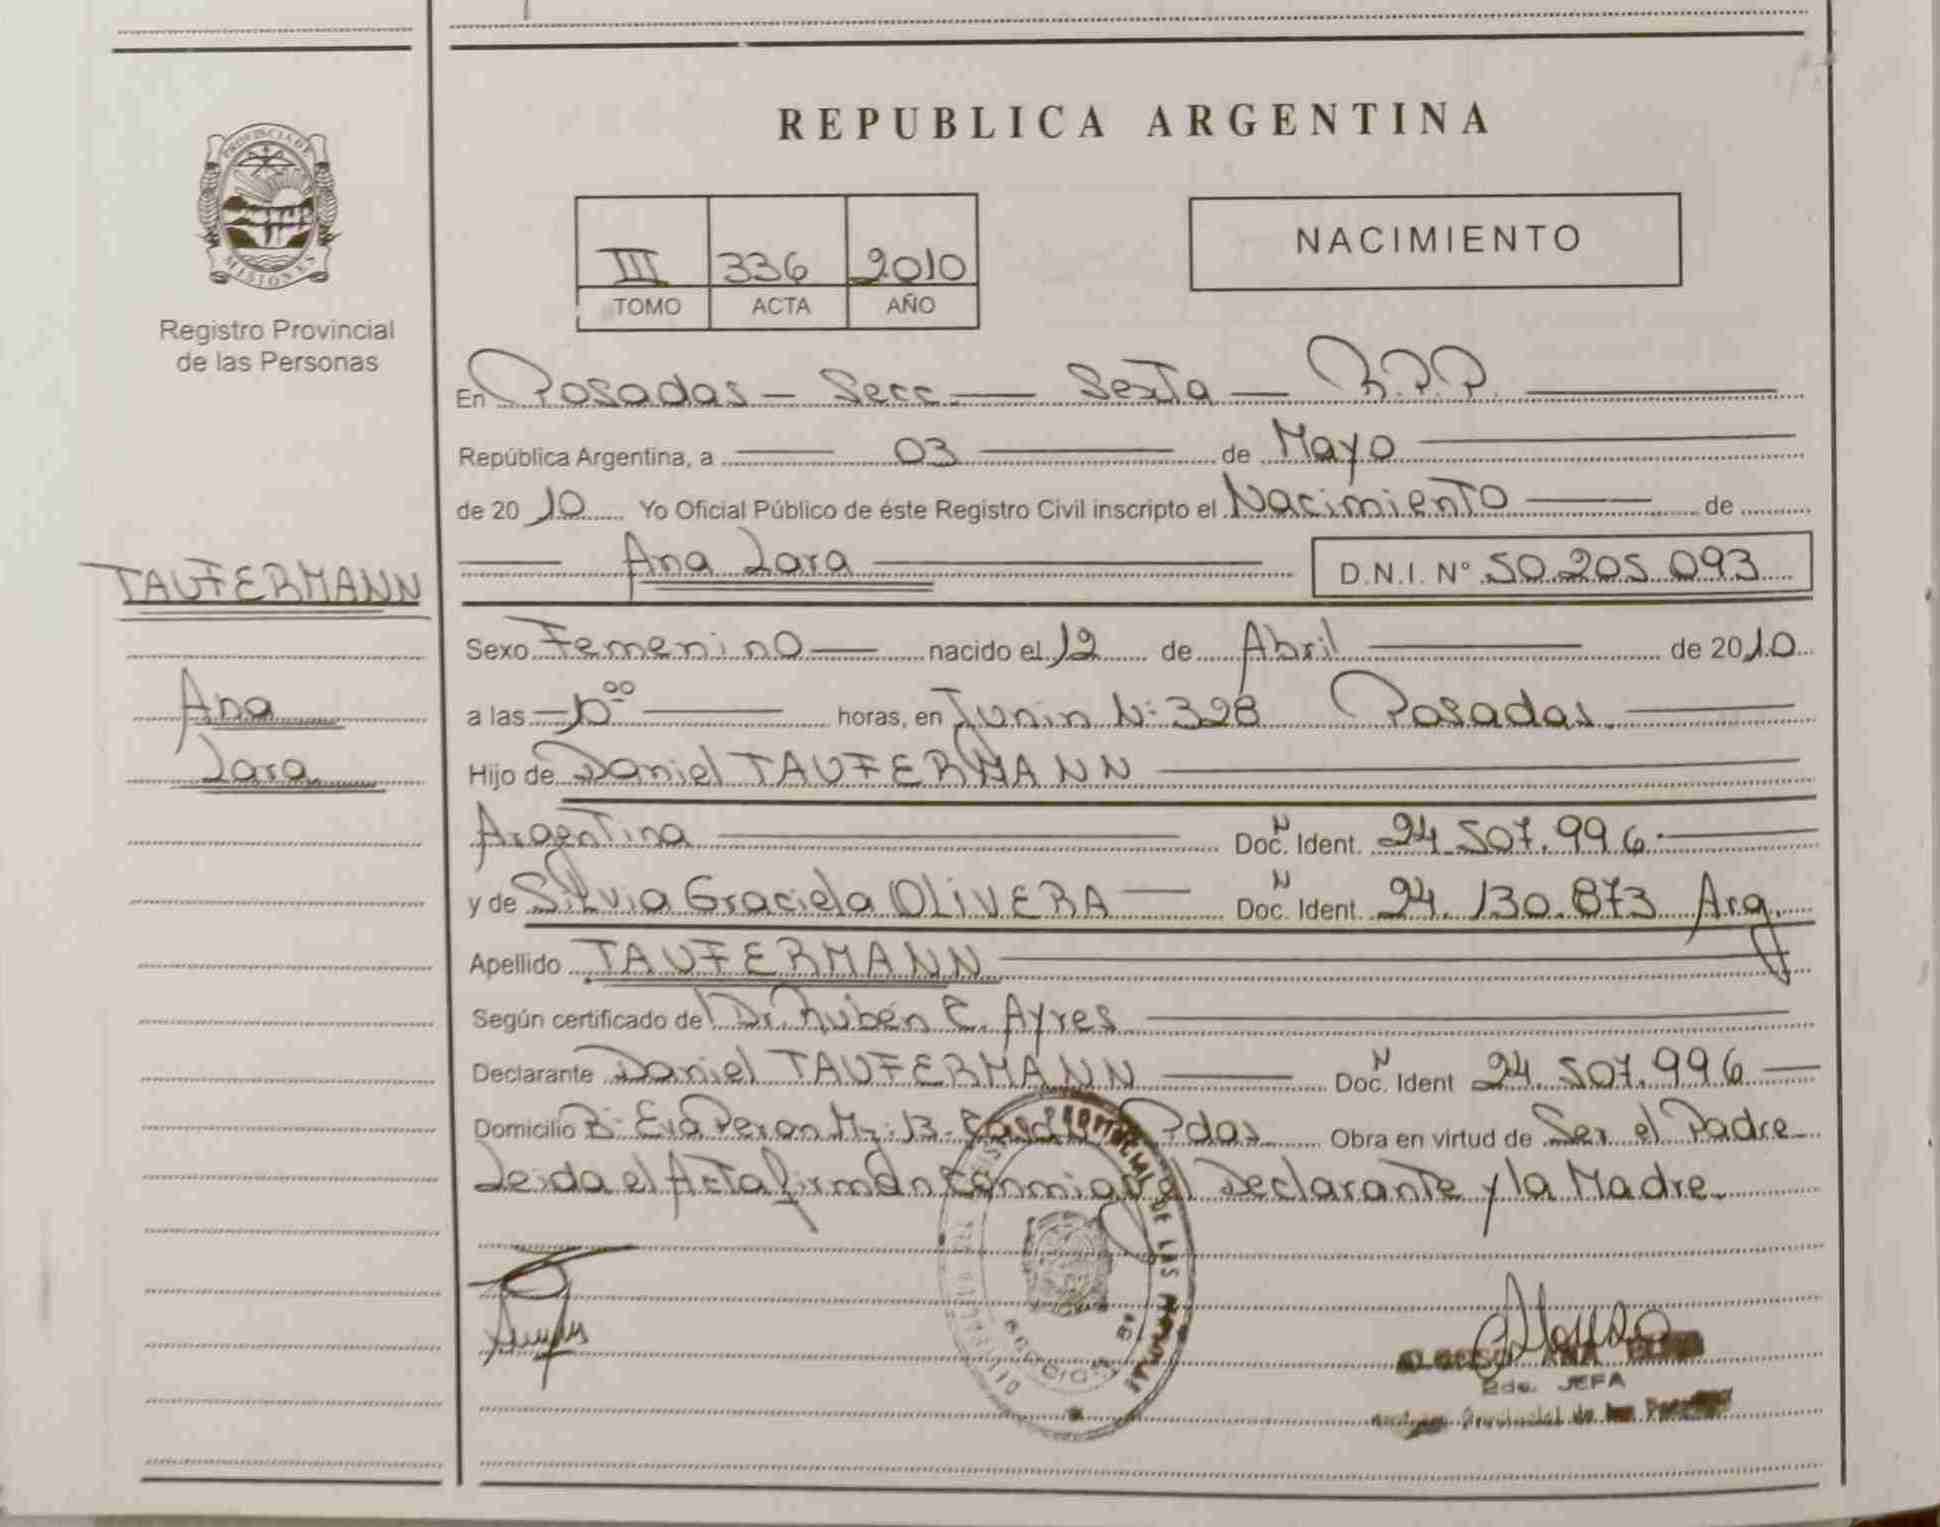 REPUBLICA ARGENTINA
PROVINCIA DE
MISIONES
Registro Provincial
de las Personas
III 336 2010
TOMO ACTA AÑO
NACIMIENTO
En Posadas - Secc. - Sexta - R.P.P.
República Argentina, a 03 de Mayo
de 2010 Yo Oficial Público de éste Registro Civil inscripto el Nacimiento de
Ana Lara D.N.I. Nº 50.205.093
TAUFERMANN
Ana
Lara
Sexo Femenino nacido el 12 de Abril de 2010
a las 10:00 horas, en Junin Nº 328 Posadas.
Hijo de Daniel TAUFERMANN
Argentina Doc. Ident. 24.507.996
y de Silvia Graciela OLIVERA Doc. Ident. 24.130.873 Arg.
Apellido TAUFERMANN
Según certificado del Dr. Rubén E. Ayres
Declarante Daniel TAUFERMANN Doc. Ident 24.507.996
Domicilio Bº Eva Peron Mz. 13 Pdas Obra en virtud de Ser el Padre
Leida el Acta firman conmigo el Declarante y la Madre.
ANA
2da. JEFA
Provincial de las